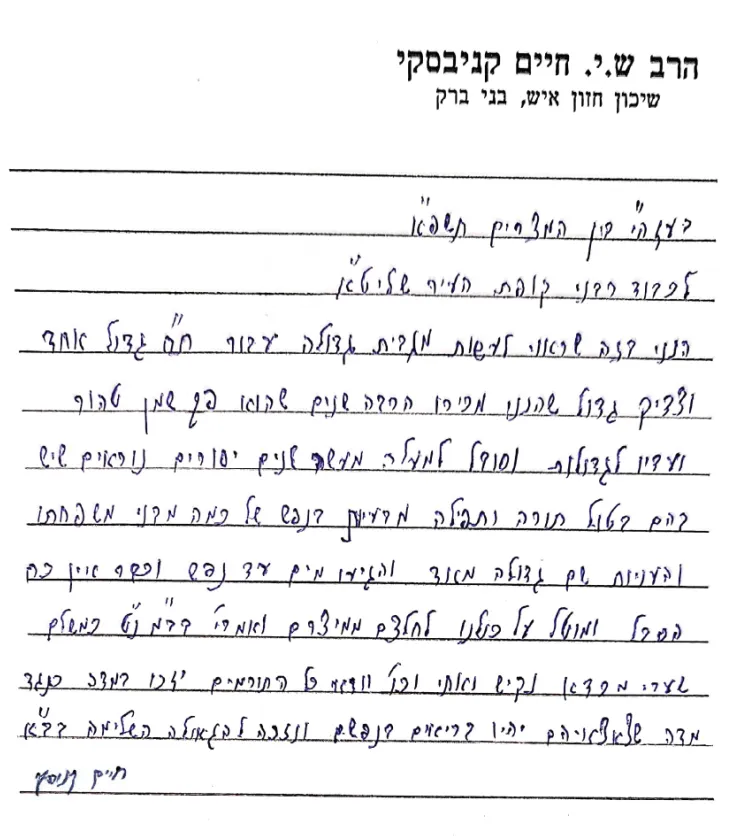 הרב ש.י. חיים קניבסקי
שיכון חזון איש, בני ברק
בעזה"י בין המצרים תשפ"א
לכבוד רבני קופת העיר שליט"א
הנני בזה שראוי לעשות מגבית גדולה עבור ת"ח גדול אחד
וצדיק גדול שהננו מכירו הרבה שנים שהוא פך שמן טהור
ועדיו לגדולות וסובל למעלה מעשר שנים יסורים נוראים שיש
בהם בטול תורה ותפילה מרעיון בנפש של כמה מבני משפחתו
והעניות שם גדולה מאוד והגיעו מים עד נפש וכבר אין כח
הסבל ומוטל על כולנו לחלצם ממיצרם ואמרי' בב"מ נ"ט כמשלם
שערי מכדא נקיש ואתי ובודאי כל התורמים יזכו במדה כנגד
מדה שצאצאיהם יהיו בריאים בנפשם ונזכה להגאולה השלימה בב"א
חיים קניבסקי